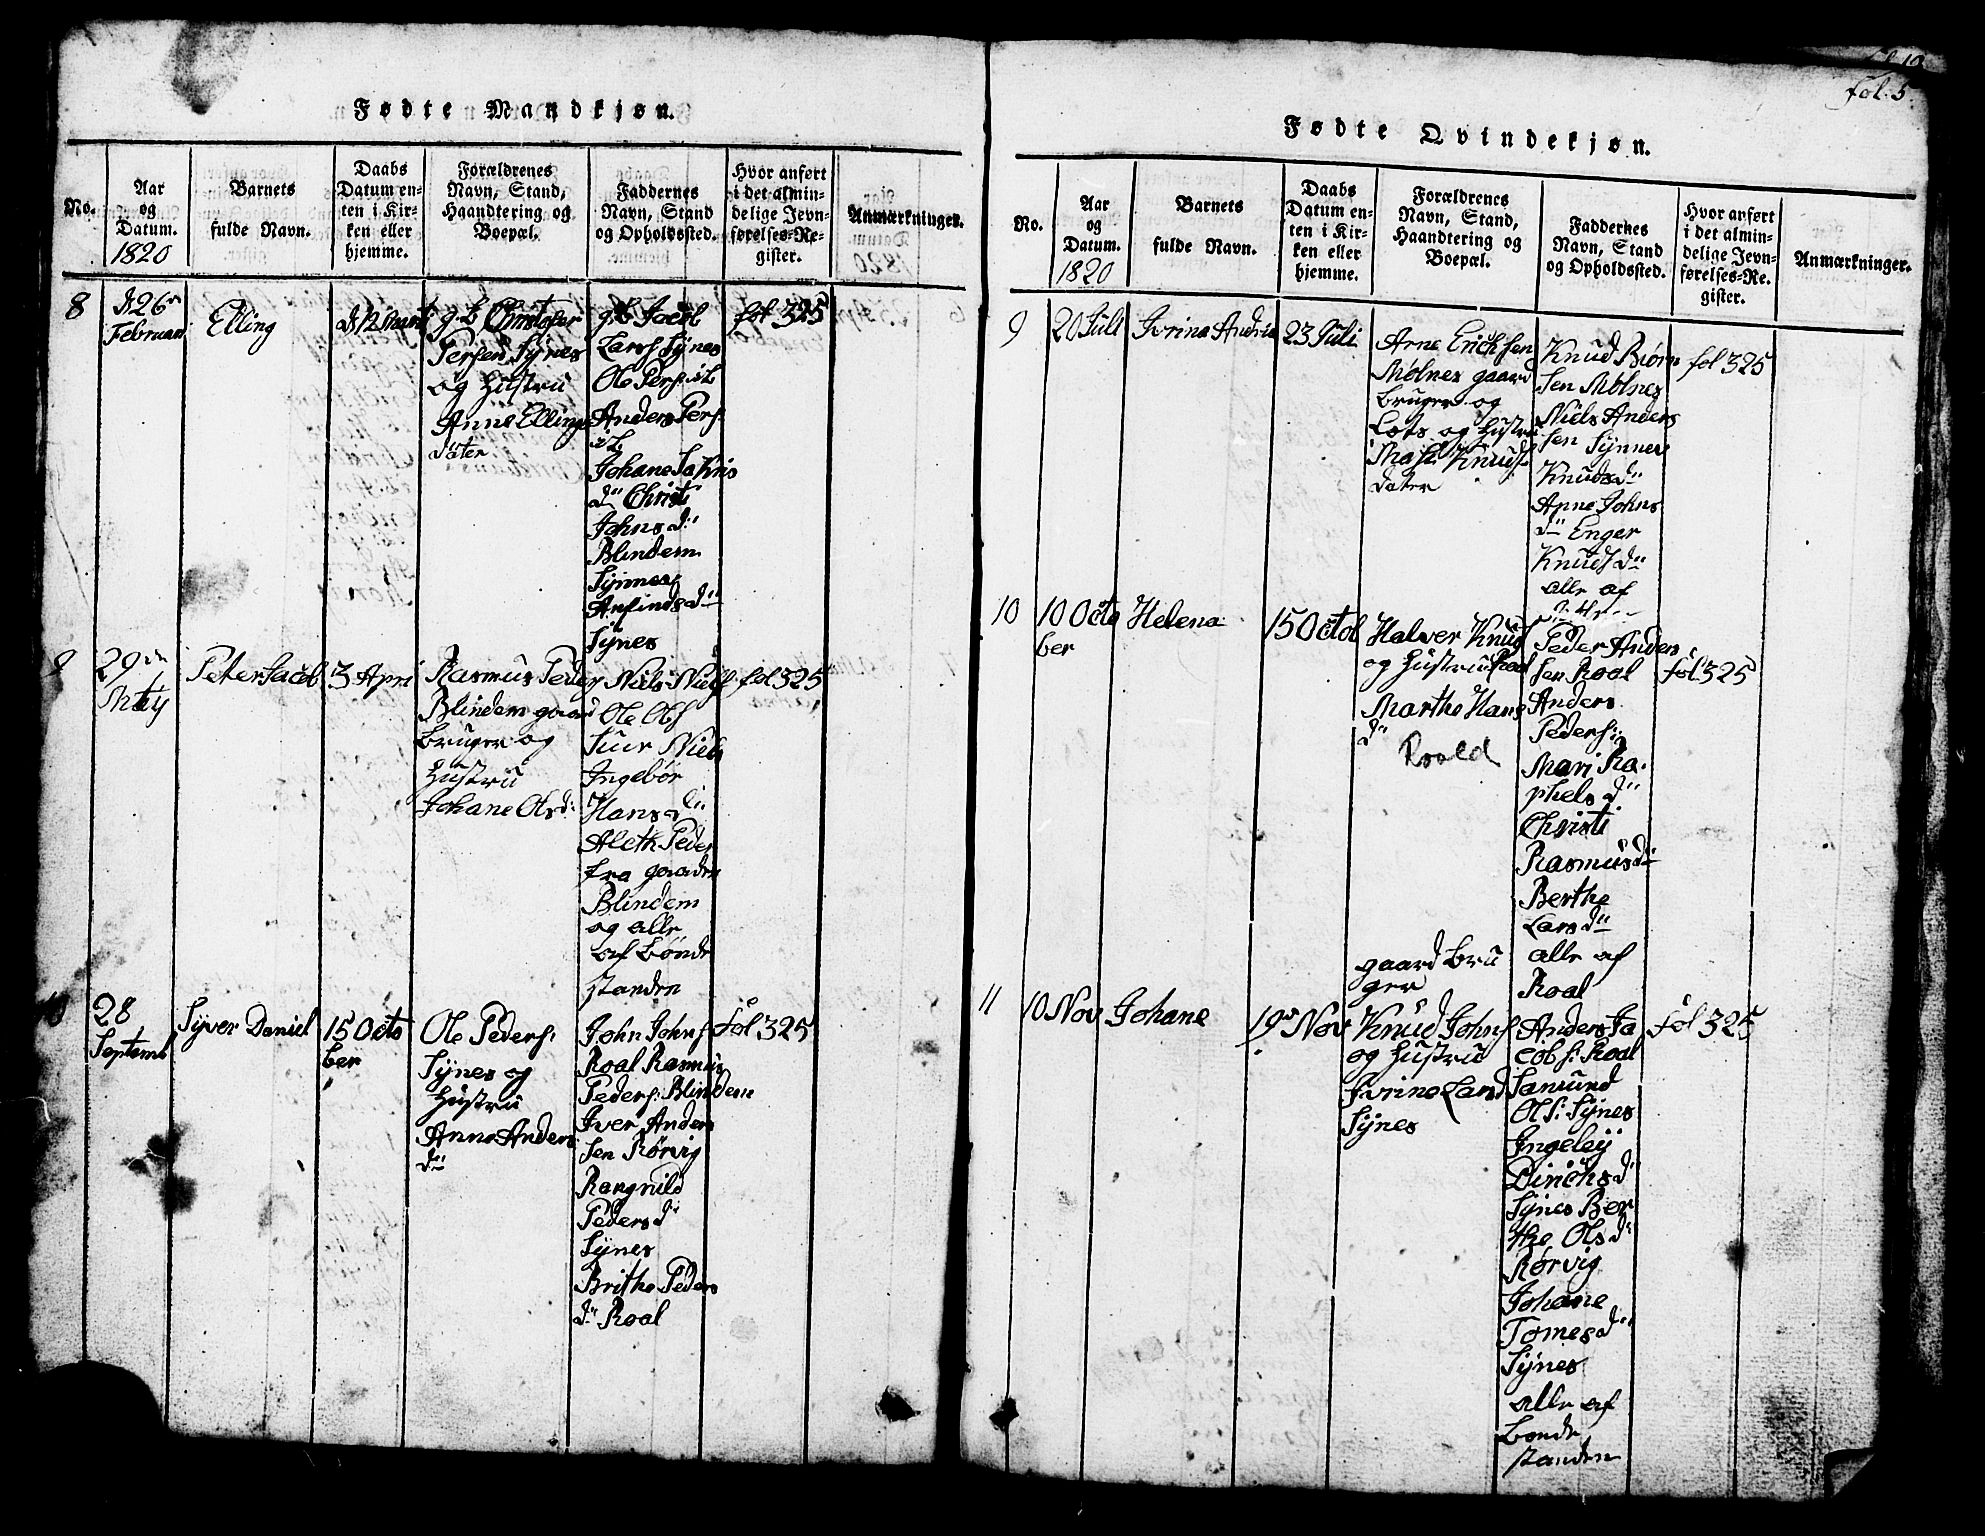 fol. 5.
Fødte Mandkjøn.
No.
Aar
og
Datum.
1820
Barnets
fulde Navn.
Daabs
Datum en-
ten i Kir-
ken eller
hjemme.
Forældrenes
Navn, Stand,
Haandtering og
Boepæl.
Faddernes
Navn, Stand
og Opholdssted.
Hvor anført
i det almin-
delige Jevn-
førelses-Re-
gister.
Anmærkninger.
8
d. 26
Februari
Elling
g.b. Christofer
Persen Synes
og Hustru
Anne Ellings
dater
g.b. Jacob
Lars. Synes
Ole Pers. ib
Anders Pers
ib
Johane
d.. Christi
Johns d..
Blindem
Synnes
Arfinds d..
Synes
fol 325
9
29
May
Peter Jacob
3 Apri
Rasmus Peder
Blindem gaard
bruger og
Hustru
Johane Ols d:
Niels Niels
Ole Ols
Siur Niels
Ingebör
Hans d..
Aleth Peder
fra gaarden
Blindem
og alle
af bønde
standen
fol 325
28
Septemb
Syver Daniel
15 Octo
ber
Ole Peders:
Synes og
Hustru
Anne Anders
d..
John Johns
Roal Rasmus
Peders: Blindem
Iver Anders
sen Rørvig
Rangnild
Peders d..
Synes
Brithe Peders
d.. Roal
fol 325
Fødte Qvindekjøn.
No.
Aar
og
Datum.
1820
Barnets
fulde Navn.
Daabs
Datum en-
ten i Kir-
ken eller
hjemme.
Forældrenes
Navn, Stand,
Haandtering og
Boepæl.
Faddernes
Navn, Stand
og Opholdssted.
Hvor anført
i det almin-
delige Jevn-
førelses-Re-
gister.
Anmærkninger.
9
20 Juli
Ivrine Andria
23 Juli
Arne Erichsen
Mölnes gaard
bruger og
Lots og Hustru
Knuds
dater
Knud Biørn
sen Mölnes
Niels Anders
sen Synnes
Knuds d..
Anne Johns
d.. Enger
Knuds d..
alle af
fol 325
10
10 Octo
ber
Helena
15 Octob
Halver Knuds
og Hustru Roal
Marthe Hans
d..
Roald
gaard bru
ger
Peder Anders
sen Roal
Anders
Peders:
Mari Ra-
phels d..
Christi
Rasmus d..
Berthe
Lars d..
alle af
Roal
fol 325
11
10 Nov
Johane
19 Nov
Knud Johns
og Hustru
Ivrine Lars d
Synes
Anders Ja
cobs: Roal
Samund
Ols: Synes
Ingeley
Dinchs d..
Synes Ber
the Ols d..
Rørvig
Johane
Tomes d..
Synes
alle af
bonde
standen
fol 325